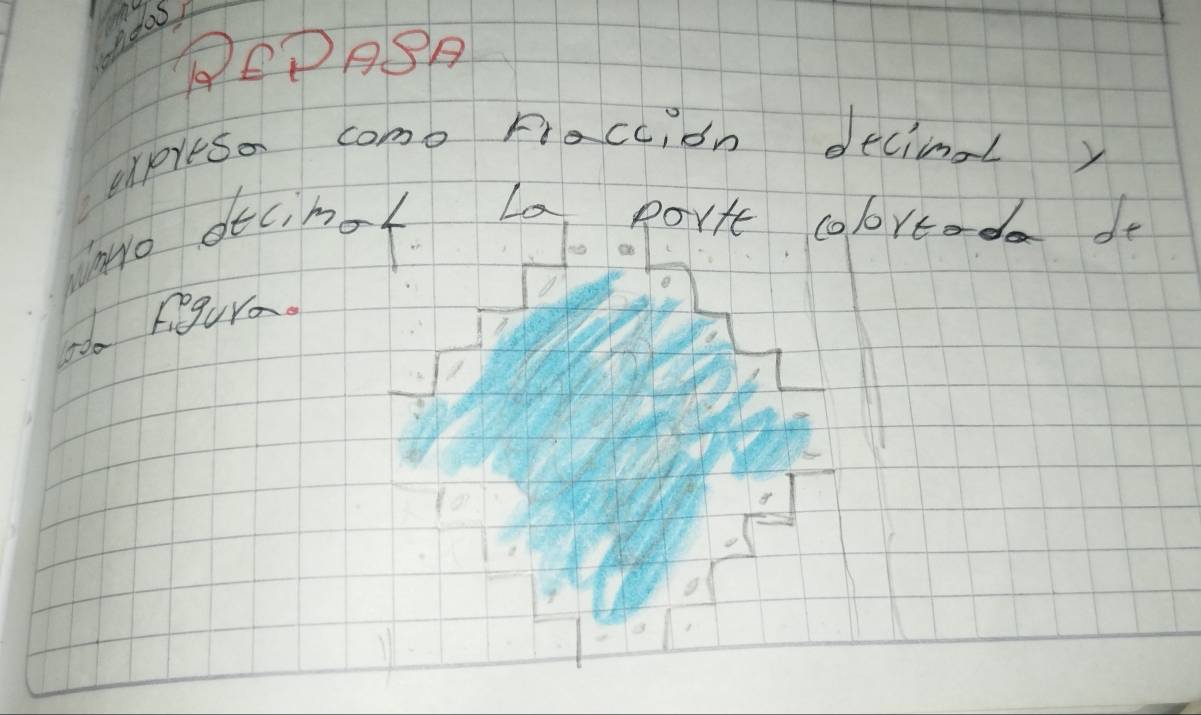 REPASA
expresa como Fracción decimal y
número decimal La parte coloreada de
cada Figura.